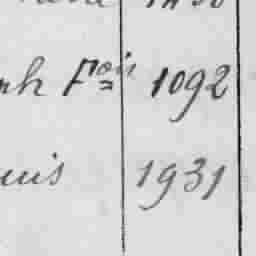 nh Fois 1092
uis 1931